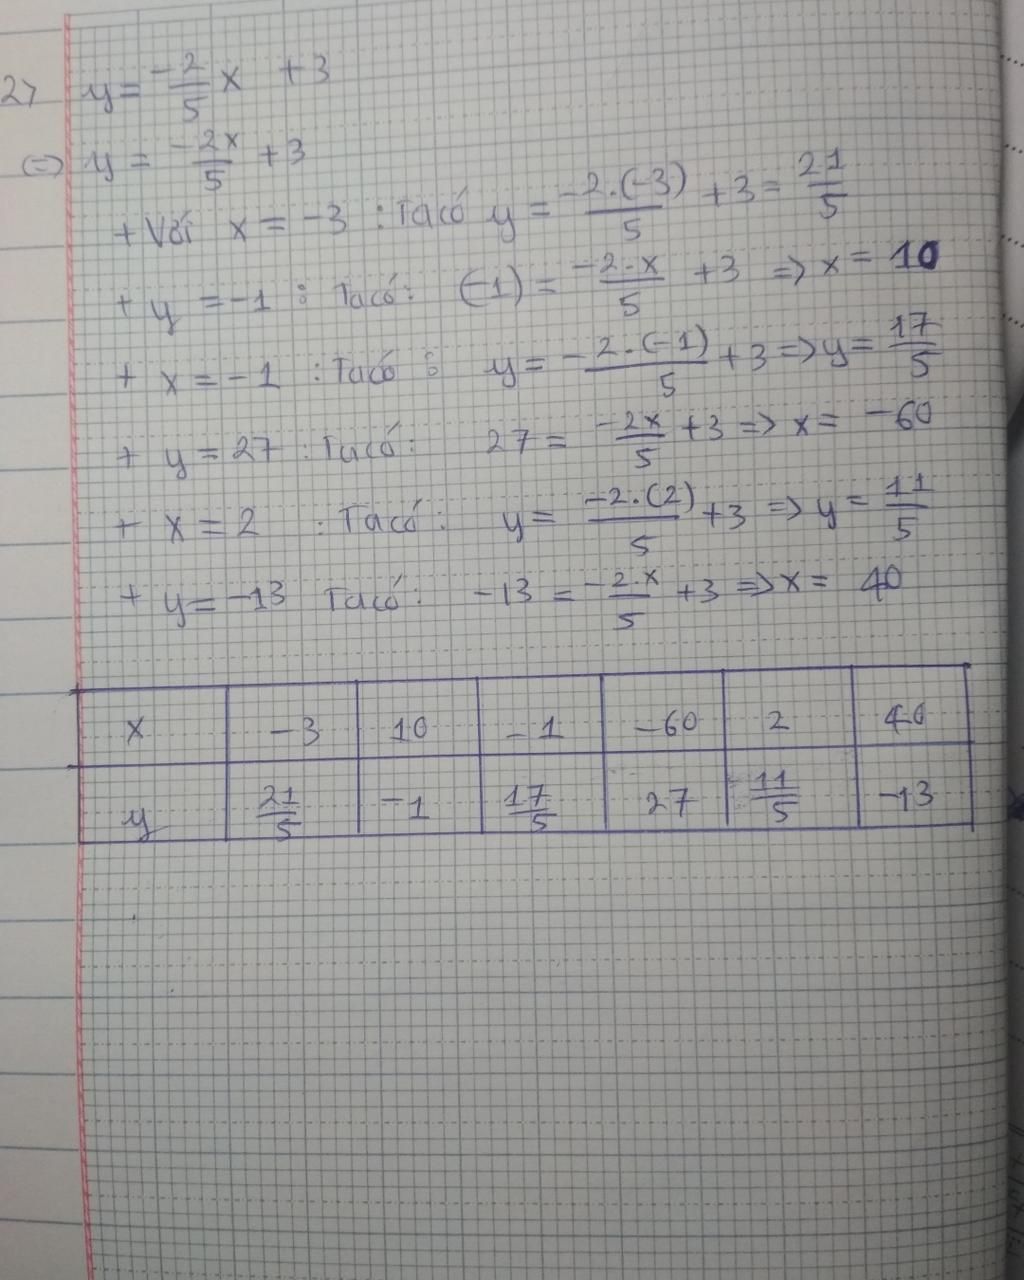 2) y = -2/5 x + 3
(=) y = -2x/5 + 3
+ Với x = -3 : Ta có y = -2.(-3)/5 + 3 = 21/5
+ y = -1 : Ta có: (-1) = -2.x/5 + 3 => x = 10
+ x = -1 : Ta có : y = -2.(-1)/5 + 3 => y = 17/5
+ y = 27 : Ta có: 27 = -2x/5 + 3 => x = -60
+ x = 2 : Ta có: y = -2.(2)/5 + 3 => y = 11/5
+ y = -13 Ta có: -13 = -2.x/5 + 3 => x = 40
x -3 10 -1 -60 2 40
y 21/5 -1 17/5 27 11/5 -13